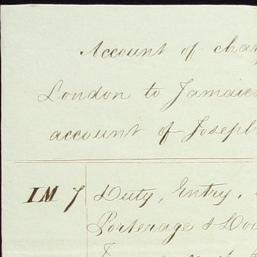 Account of
London to Jamaica
account of Joseph
IM 7 Duty, Entry,
Porterage &